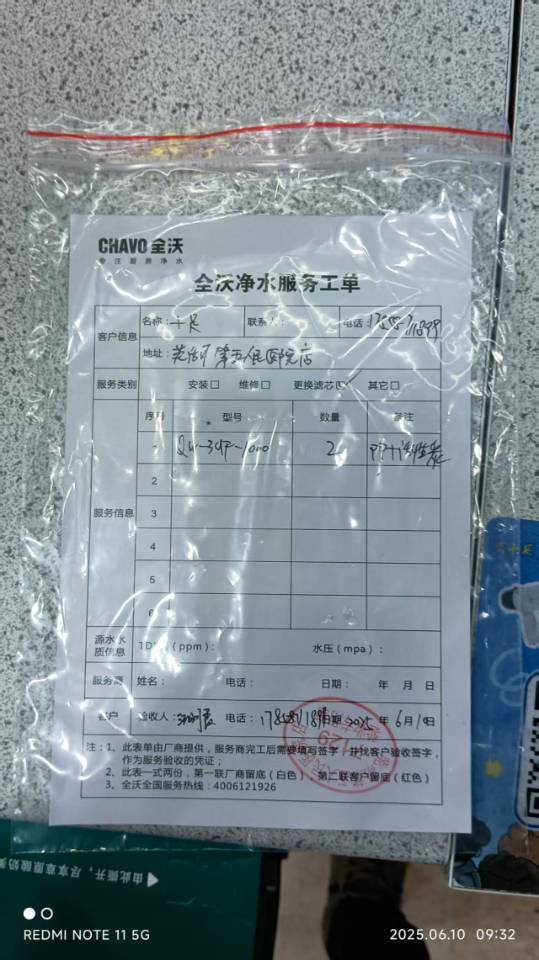 CHAVO 全沃
专注厨房净水
全沃净水服务工单
客户信息
名称：十足 联系人： 电话：
地址：芜湖市第五人民医院店
服务类别 安装□ 维修□ 更换滤芯☑ 其它□
服务信息
序号 型号 数量 备注
2 PP+活性炭
2
3
4
5
6
源水水质信息 TDS（ppm）： 水压（mpa）：
服务商 姓名： 电话： 日期： 年 月 日
客户 验收人： 电话： 日期：2025年6月10日
注：1、此表单由厂商提供，服务商完工后需要填写签字，并找客户验收签字，
作为服务验收的凭证；
2、此表一式两份，第一联厂商留底（白色） 第二联客户留底（红色）
3、全沃全国服务热线：4006121926
由此撕开，尽享寡原酸奶
REDMI NOTE 11 5G
2025.06.10 09:32